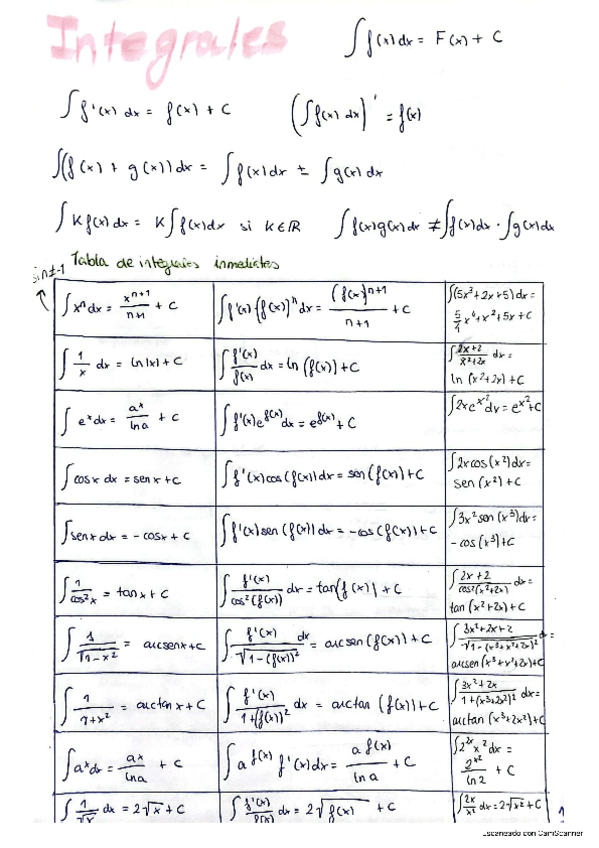 Integrales
∫f(x)dx = F(x) + C
∫f'(x) dx = f(x) + C
(∫f(x) dx)' = f(x)
∫(f(x) + g(x)) dx = ∫f(x)dx ± ∫g(x)dx
∫K f(x)dx = K∫f(x)dx si K∈ℝ
∫f(x)g(x)dx ≠ ∫f(x)dx · ∫g(x)dx
Tabla de integrales inmediatas
si n≠-1
∫xⁿ dx = xⁿ⁺¹/(n+1) + C
∫f'(x)·[f(x)]ⁿ dx = (f(x))ⁿ⁺¹/(n+1) + C
∫(5x³+2x+5)dx =
5/4 x⁴+x²+5x+C
∫1/x dx = ln|x| + C
∫f'(x)/f(x) dx = ln (f(x)) + C
∫(2x+2)/(x²+2x) dx =
ln (x²+2x) + C
∫eˣdx = aˣ/ln a + C
∫f'(x)e^f(x) dx = e^f(x) + C
∫2xe^x² dx = e^x²+C
∫cosx dx = sen x + C
∫f'(x)cos(f(x))dx = sen(f(x)) + C
∫2xcos(x²)dx =
sen (x²) + C
∫senx dx = - cosx + C
∫f'(x)sen(f(x))dx = -cos(f(x)) + C
∫3x² sen(x³)dx =
- cos(x³)+C
∫1/cos²x = tanx + C
∫f'(x)/cos²(f(x)) dx = tan(f(x)) + C
∫(2x+2)/cos²(x²+2x) dx =
tan (x²+2x) + C
∫1/√(1-x²) = arcsenx + C
∫f'(x)/√(1-(f(x))²) dx = arcsen(f(x)) + C
∫(3x²+2x+2)/√(1-(x³+x²+2x)²) dx =
arcsen(x³+x²+2x)+C
∫1/(1+x²) = arctan x + C
∫f'(x)/(1+(f(x))²) dx = arctan (f(x)) + C
dx =
arctan (x³+2x²)+C
∫aˣdx = aˣ/ln a + C
∫a^f(x) f'(x)dx = a^f(x)/ln a + C
2^x²/ln 2 + C
∫1/√x dx = 2√x + C
dx = 2√f(x) + C
∫2x/x² dx = 2√x² + C
1
Escaneado con CamScanner